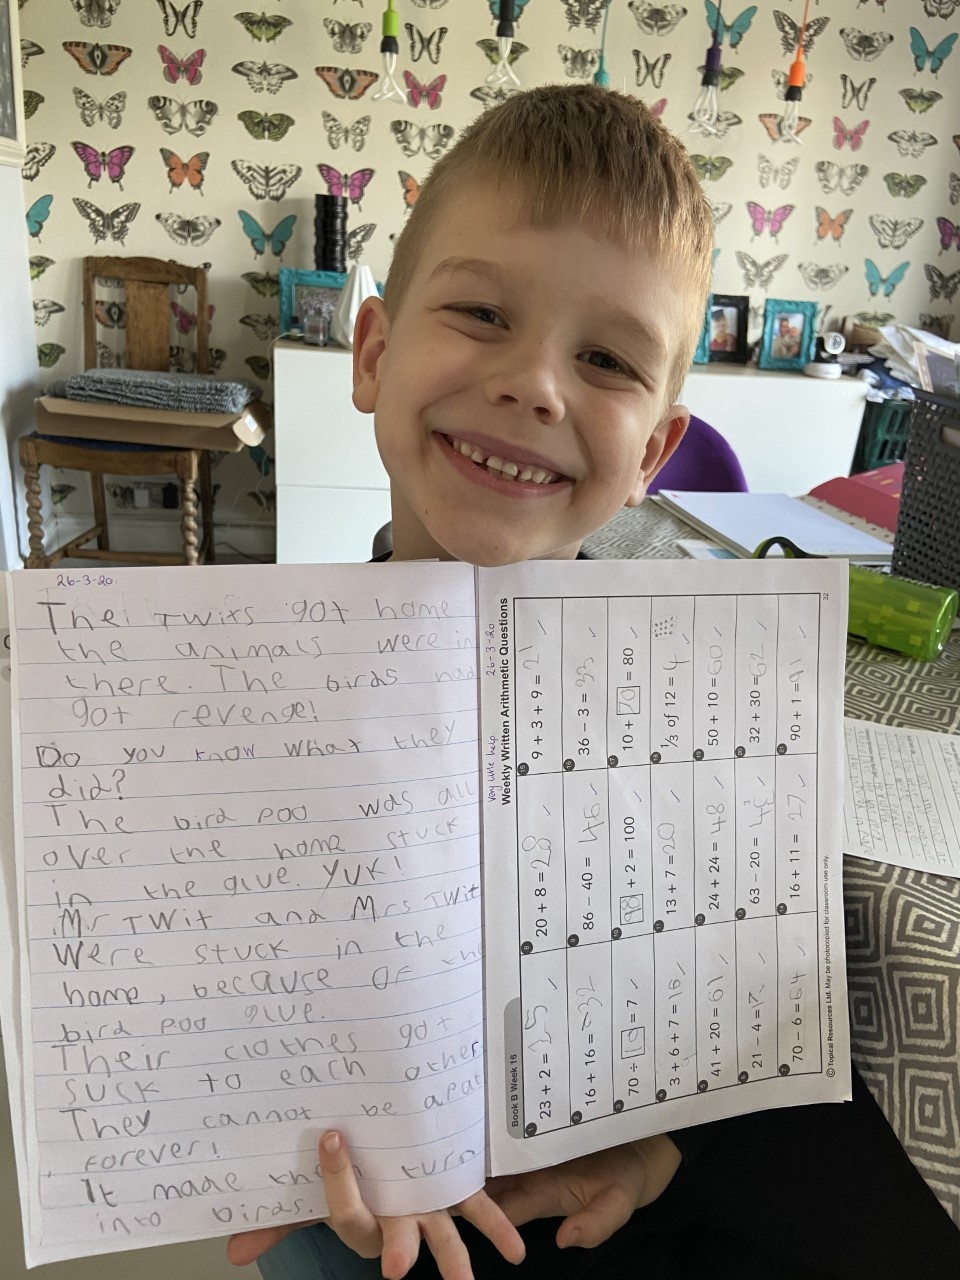 26-3-20
The Twits got home
the animals were in
there. The birds had
got revenge!
Do you know what they
did?
The bird poo was all
over the home stuck
in the glue. YUK!
Mr Twit and Mrs Twit
were stuck in the
home, because of the
bird poo glue.
Their clothes got
suck to each other.
They cannot be apat
forever!
It made them turn
into birds.
Very little help 26-3-20
Weekly Written Arithmetic Questions
Book B Week 16
1 23 + 2 = 25 ✓
2 16 + 16 = 32
3 70 ÷ 10 = 7 ✓
4 3 + 6 + 7 = 16 ✓
5 41 + 20 = 61 ✓
6 21 - 4 = 17 ✓
7 70 - 6 = 64 ✓
8 20 + 8 = 28 ✓
9 86 - 40 = 46 ✓
10 98 + 2 = 100 ✓
11 13 + 7 = 20 ✓
12 24 + 24 = 48 ✓
13 63 - 20 = 43 ✓
14 16 + 11 = 27 ✓
15 9 + 3 + 9 = 21 ✓
16 36 - 3 = 33 ✓
17 10 + 70 = 80 ✓
18 1/3 of 12 = 4 ✓
19 50 + 10 = 60 ✓
20 32 + 30 = 62 ✓
21 90 + 1 = 91 ✓
© Topical Resources Ltd. May be photocopied for classroom use only.
32